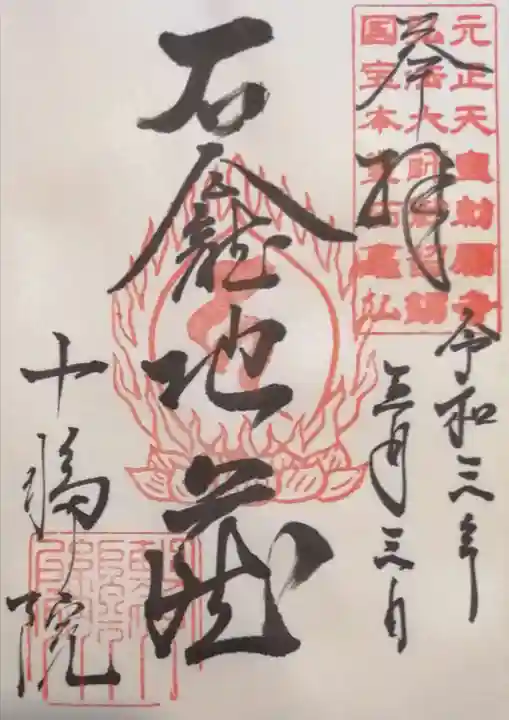 奉拝
令和三年
三月三日
石龕地蔵
十輪院
元正天皇勅願寺
弘法大師
国宝本堂石龕仏